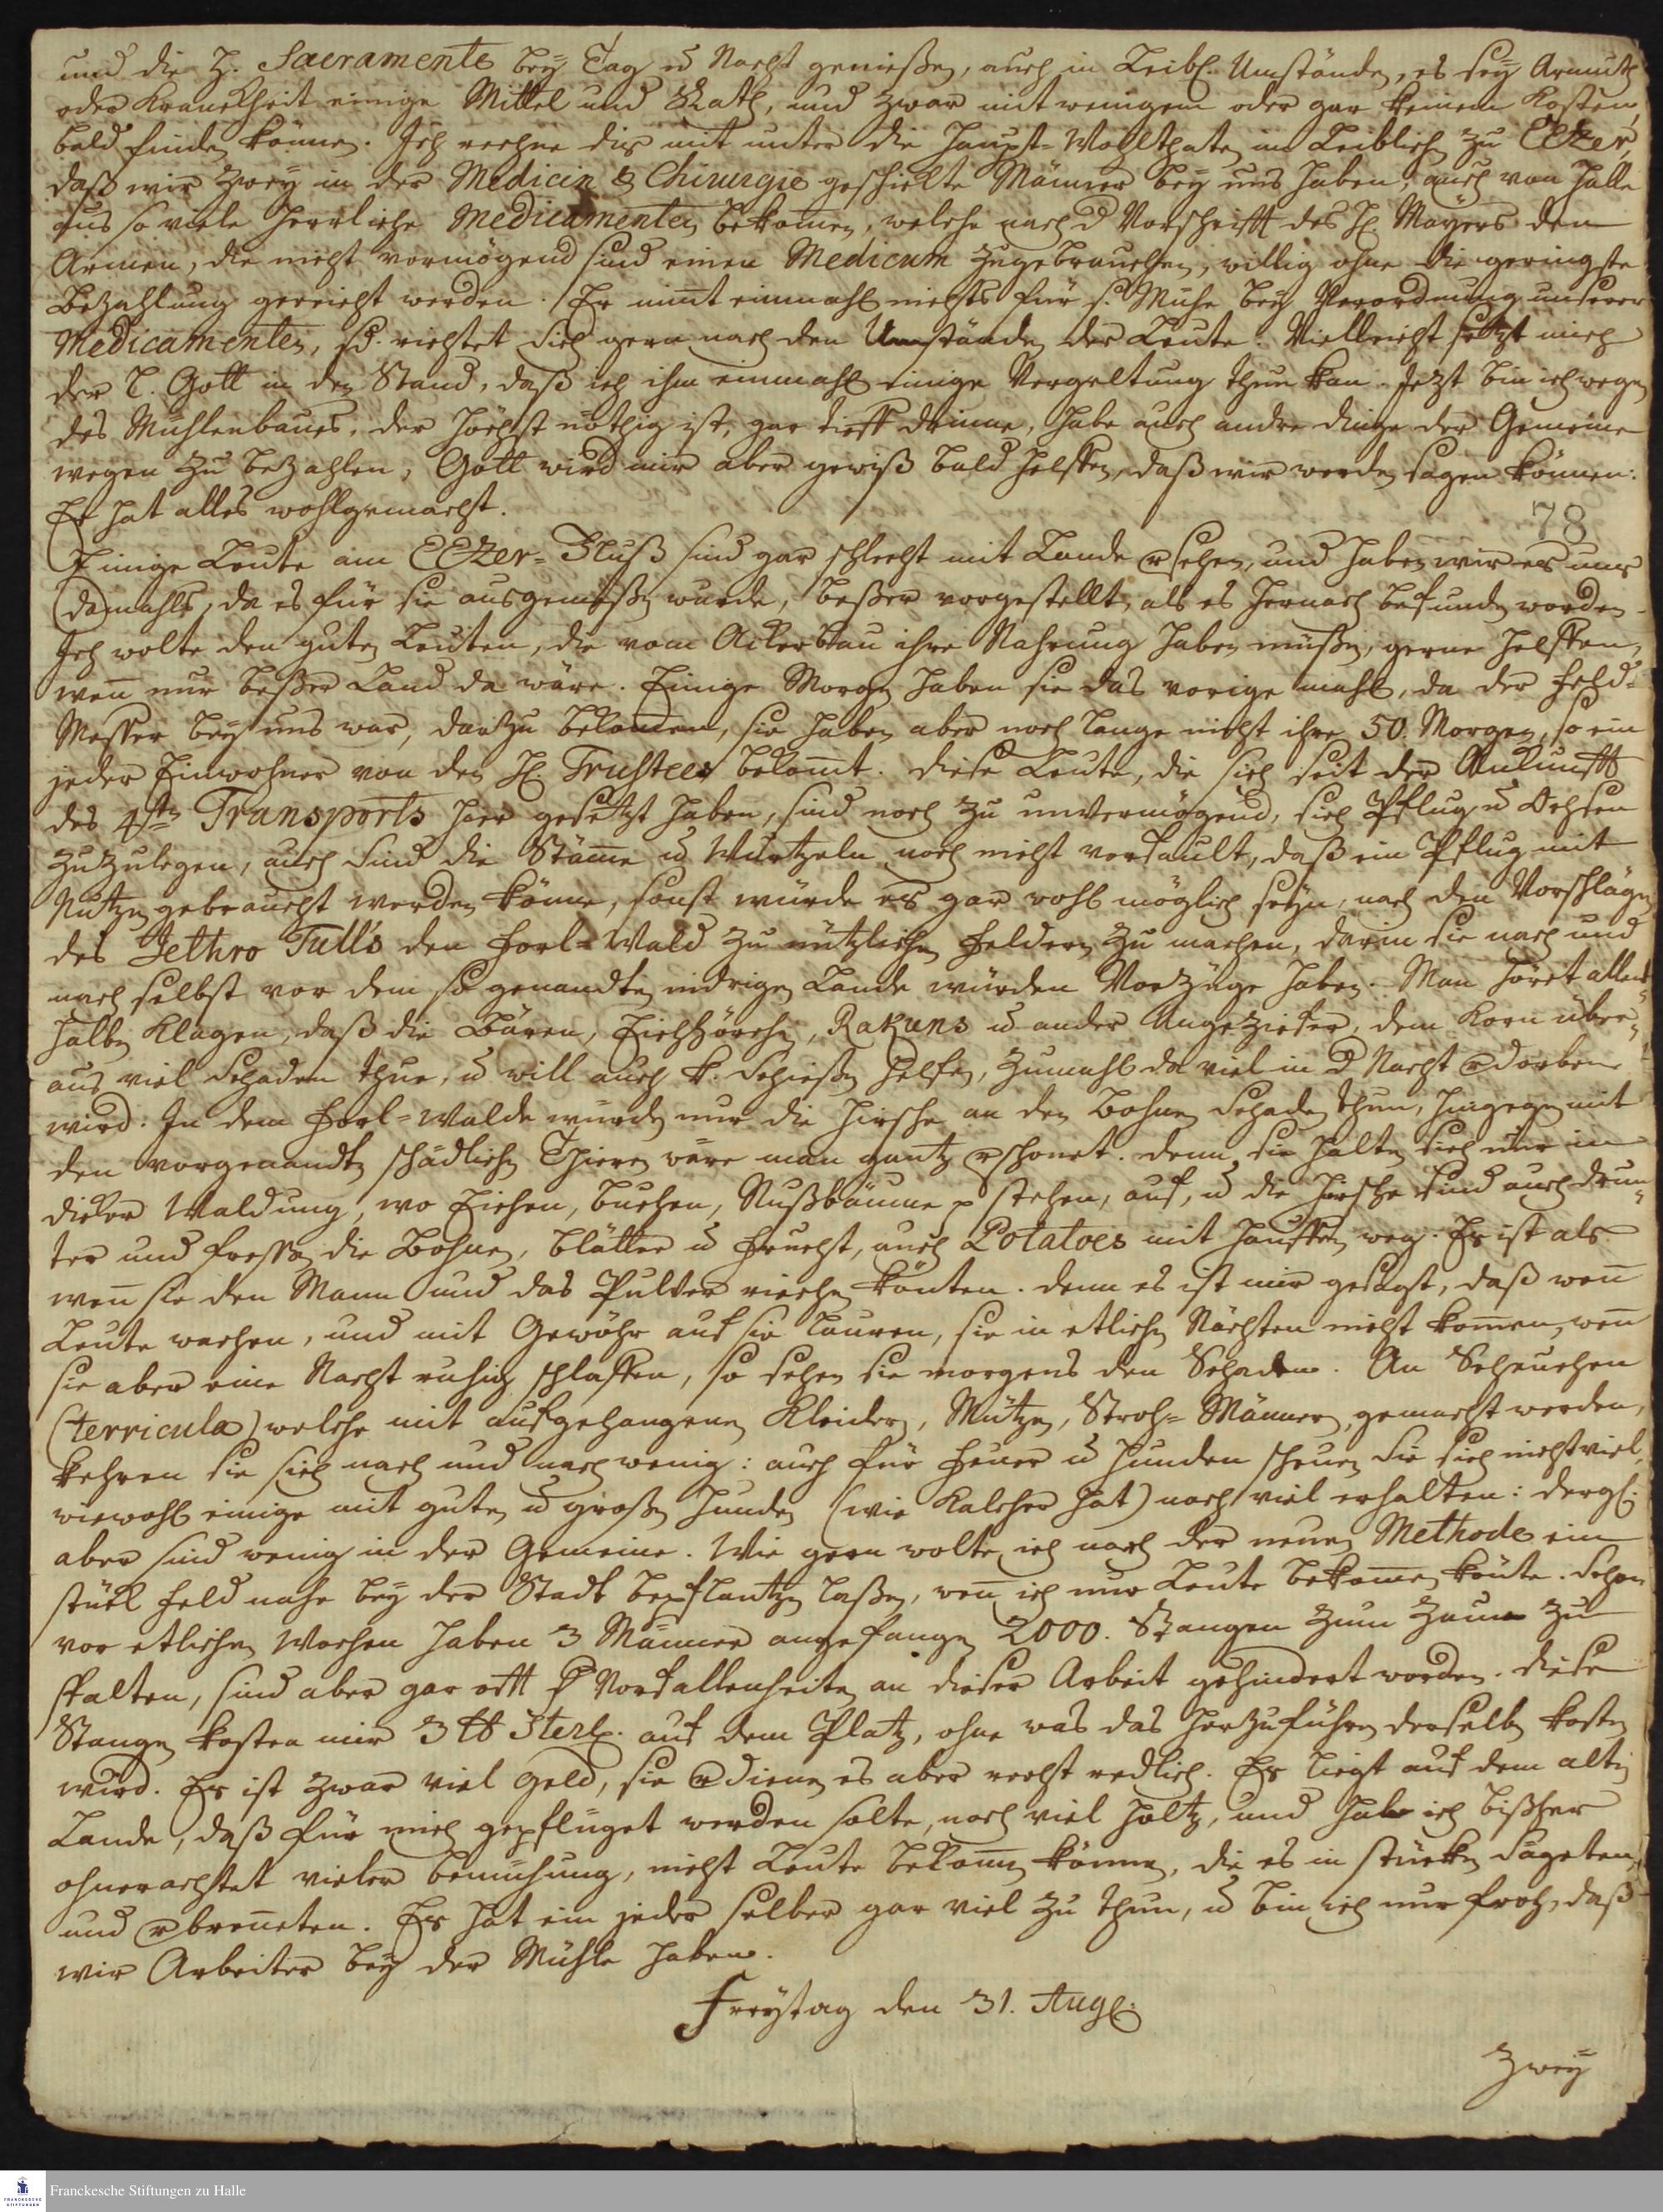 und die H. Sacramente bey Tag u Nacht genießen, auch in Leibl. Umständen, es sey Armuth
oder Kranckheit einige Mittel und Rath, und zwar mit wenigem oder gar keinem Kosten,
bald finden können. Ich rechne dis mit unter die Haupt-Wohlthaten im Leiblichen zu EEzer,
daß wir zwey in der Medicin & Chirurgie geschickte Männer bey uns haben, auch von Halle
aus so viele herrliche Medicamenten bekomen, welche nach d Vorschrifft des H. Mayers den
Armen, die nicht vermögend sind einen Medicum zugebrauchen, willig ohne die geringste
Bezahlung gereicht werden. Er nimt einmahl nichts für s. Mühe bey Verordnung unserer
Medicamenten, sd. richtet sich gern nach den Umständen der Leute. Vielleicht setzt mich
der l. Gott in den Stand, daß ich ihm einmahl einige Vergeltung thun kan. Jezt bin ich wegen
des Mühlenbaues, der höchst nöthig ist, gar tieff drinne, habe auch andre dinge der Gemeine
wegen zu bezahlen, Gott wird mir aber gewiß bald helffen, daß wir werden sagen können:
Er hat alles wohlgemacht.
78
Einige Leute am EEzer-Fluß sind gar schlecht mit Lande versehen, und haben wir es uns
damahls, da es für sie ausgemeßen wurde, beßer vorgestellt, als es hernach befunden worden.
Ich wolte den guten Leuten, die vom Ackerbau ihre Nahrung haben müßen, gerne helffen,
wen nur beßer Land da wäre. Einige Morgen haben sie das vorige mahl, da der Feld-
Messer bey uns war, dazu bekomen, sie haben aber noch lange nicht ihre 50. Morgen, so ein
jeder Einwohner von den H. Trustees bekomt. Diese Leute, die sich seit der Ankunfft
des 4ten Transports hier gesetzt haben, sind noch zu unvermögend, sich Pflug u Ochsen
zuzulegen, auch sind die Stäme u Wurtzeln noch nicht verfault, daß ein Pflug mit
Nutzen gebraucht werden könne, sonst würde es gar wohl möglich seyn, nach den Vorschlägen
des Jethro Tull's den Forl-Wald zu nützlichen Feldern zu machen, darin sie nach und
nach selbst vor dem so genandten nidrigen Lande würden Vorzüge haben. Man höret allent-
halben Klagen, daß die Bären, Eichhörchen, Rakuns u ander Ungeziefer, dem Korn über-
aus viel Schaden thue, u will auch k. Schießen helfen, zumahl da viel in d Nacht verdorben
wird. In dem Forl-Walde würden nur die Hirsche an den Bohnen Schaden thun, hingegen mit
den vorgenandten schädlichen Thieren wäre man gantz verschonet. denn sie halten sich nur in
dicker Waldung, wo Eichen, Buchen, Nußbäume p stehen, auf, u die Hirsche sind auch drun-
ter und fressen die Bohnen, blätter u Frucht, auch Potatoes mit Hauffen weg. Es ist als
wen sie den Mann und das Pulver riechen könten. denn es ist mir gesagt, daß wen
Leute wachen, und mit Gewöhr auf sie lauren, sie in etlichen Nächten nicht komen, wen
sie aber eine Nacht ruhig schlaffen, so sehen sie morgens den Schaden. An Scheuchen
(terricula) welche mit aufgehangenen Kleidern, Mützen, Stroh-Männern, gemacht werden,
kehren sie sich nach und nach wenig: auch für Feuer u Hunden scheuen sie sich nicht viel,
wiewohl einige mit guten u großen Hunden (wie Kalcher hat) noch viel erhalten: dergl.
aber sind wenig in der Gemeine. Wie gern wolte ich nach der neuen Methode ein
stück Feld nahe bey der Stadt bepflantzen laßen, wen ich nur Leute bekomen könte. Schon
vor etlichen Wochen haben 3 Männer angefangen 2000. Stangen zum Zaune zu
spalten, sind aber gar offt Vorfallenheiten an dieser Arbeit gehindert worden. Diese
Stangen kosten mir 3 lb Sterl. auf dem Platz, ohne was das herzuführen derselben kosten
wird. Es ist zwar viel Geld, sie verdienen es aber recht redlich. Es liegt auf dem alten
Lande, daß für mich gepflüget werden solte, noch viel Holtz, und habe ich bißher
ohnerachtet vieler bemühung, nicht Leute bekomen können, die es in stücken sägeten
und verbreneten. Es hat ein jeder selber gar viel zu thun, u bin ich nur froh, daß
wir Arbeiter bey der Mühle haben.
Freytag den 31. Aug.
Zwey
FRANCKESCHE STIFTUNGEN
Franckesche Stiftungen zu Halle